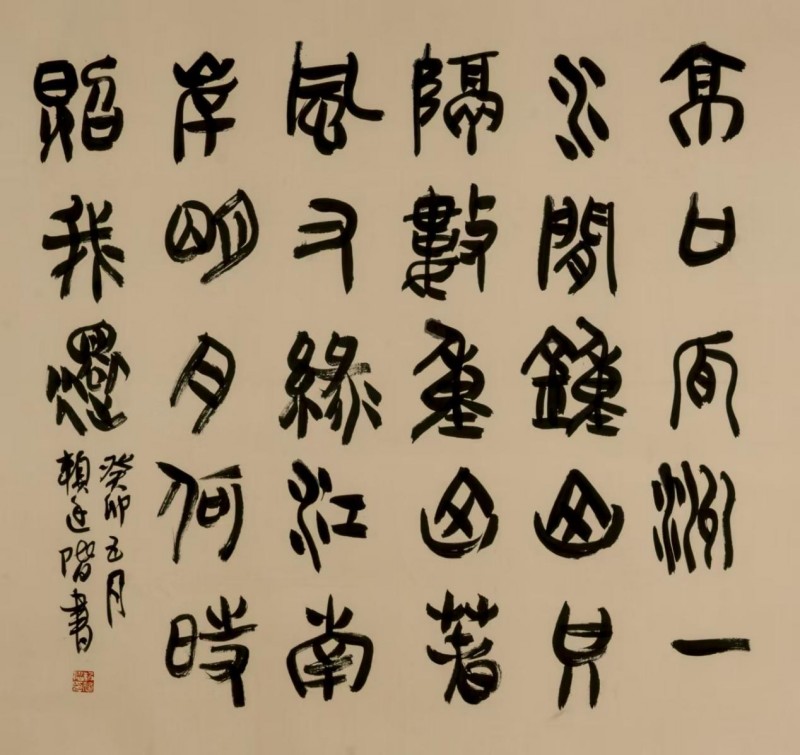 京口瓜洲一
水閒鍾山只
隔數重山春
風又綠江南
岸明月何時
照我還
癸卯五月
賴廷階書